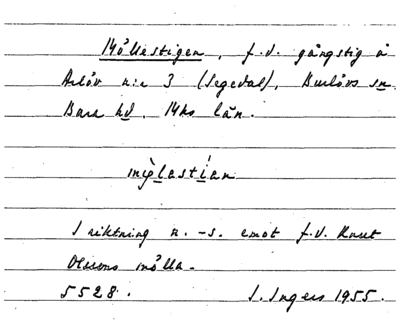 Möllestigen, f.d. gångstig å
Arlöv n:r 3 (Segevål), Burlövs sn
Bara hd, Mhs län.
mø̀lastían
I riktning n. -s. emot f.d. Knut
Olssons mölla.
5528. I. Ingers 1955.